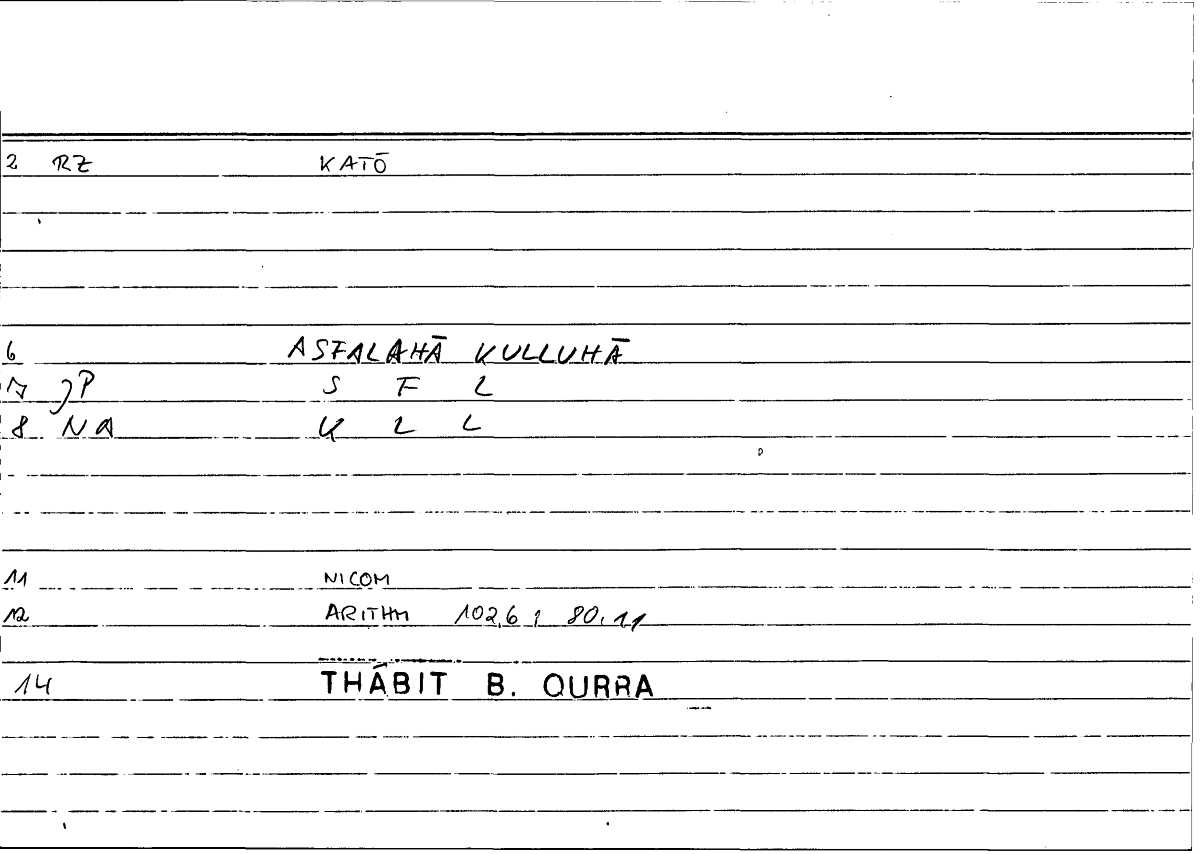 2 RZ KATŌ
6 ASFALAHĀ KULLUHĀ
7 JP S F L
8 NA K L L
11 NICOM
12 ARITHM 102,6 ; 80,11
14 THĀBIT B. QURRA